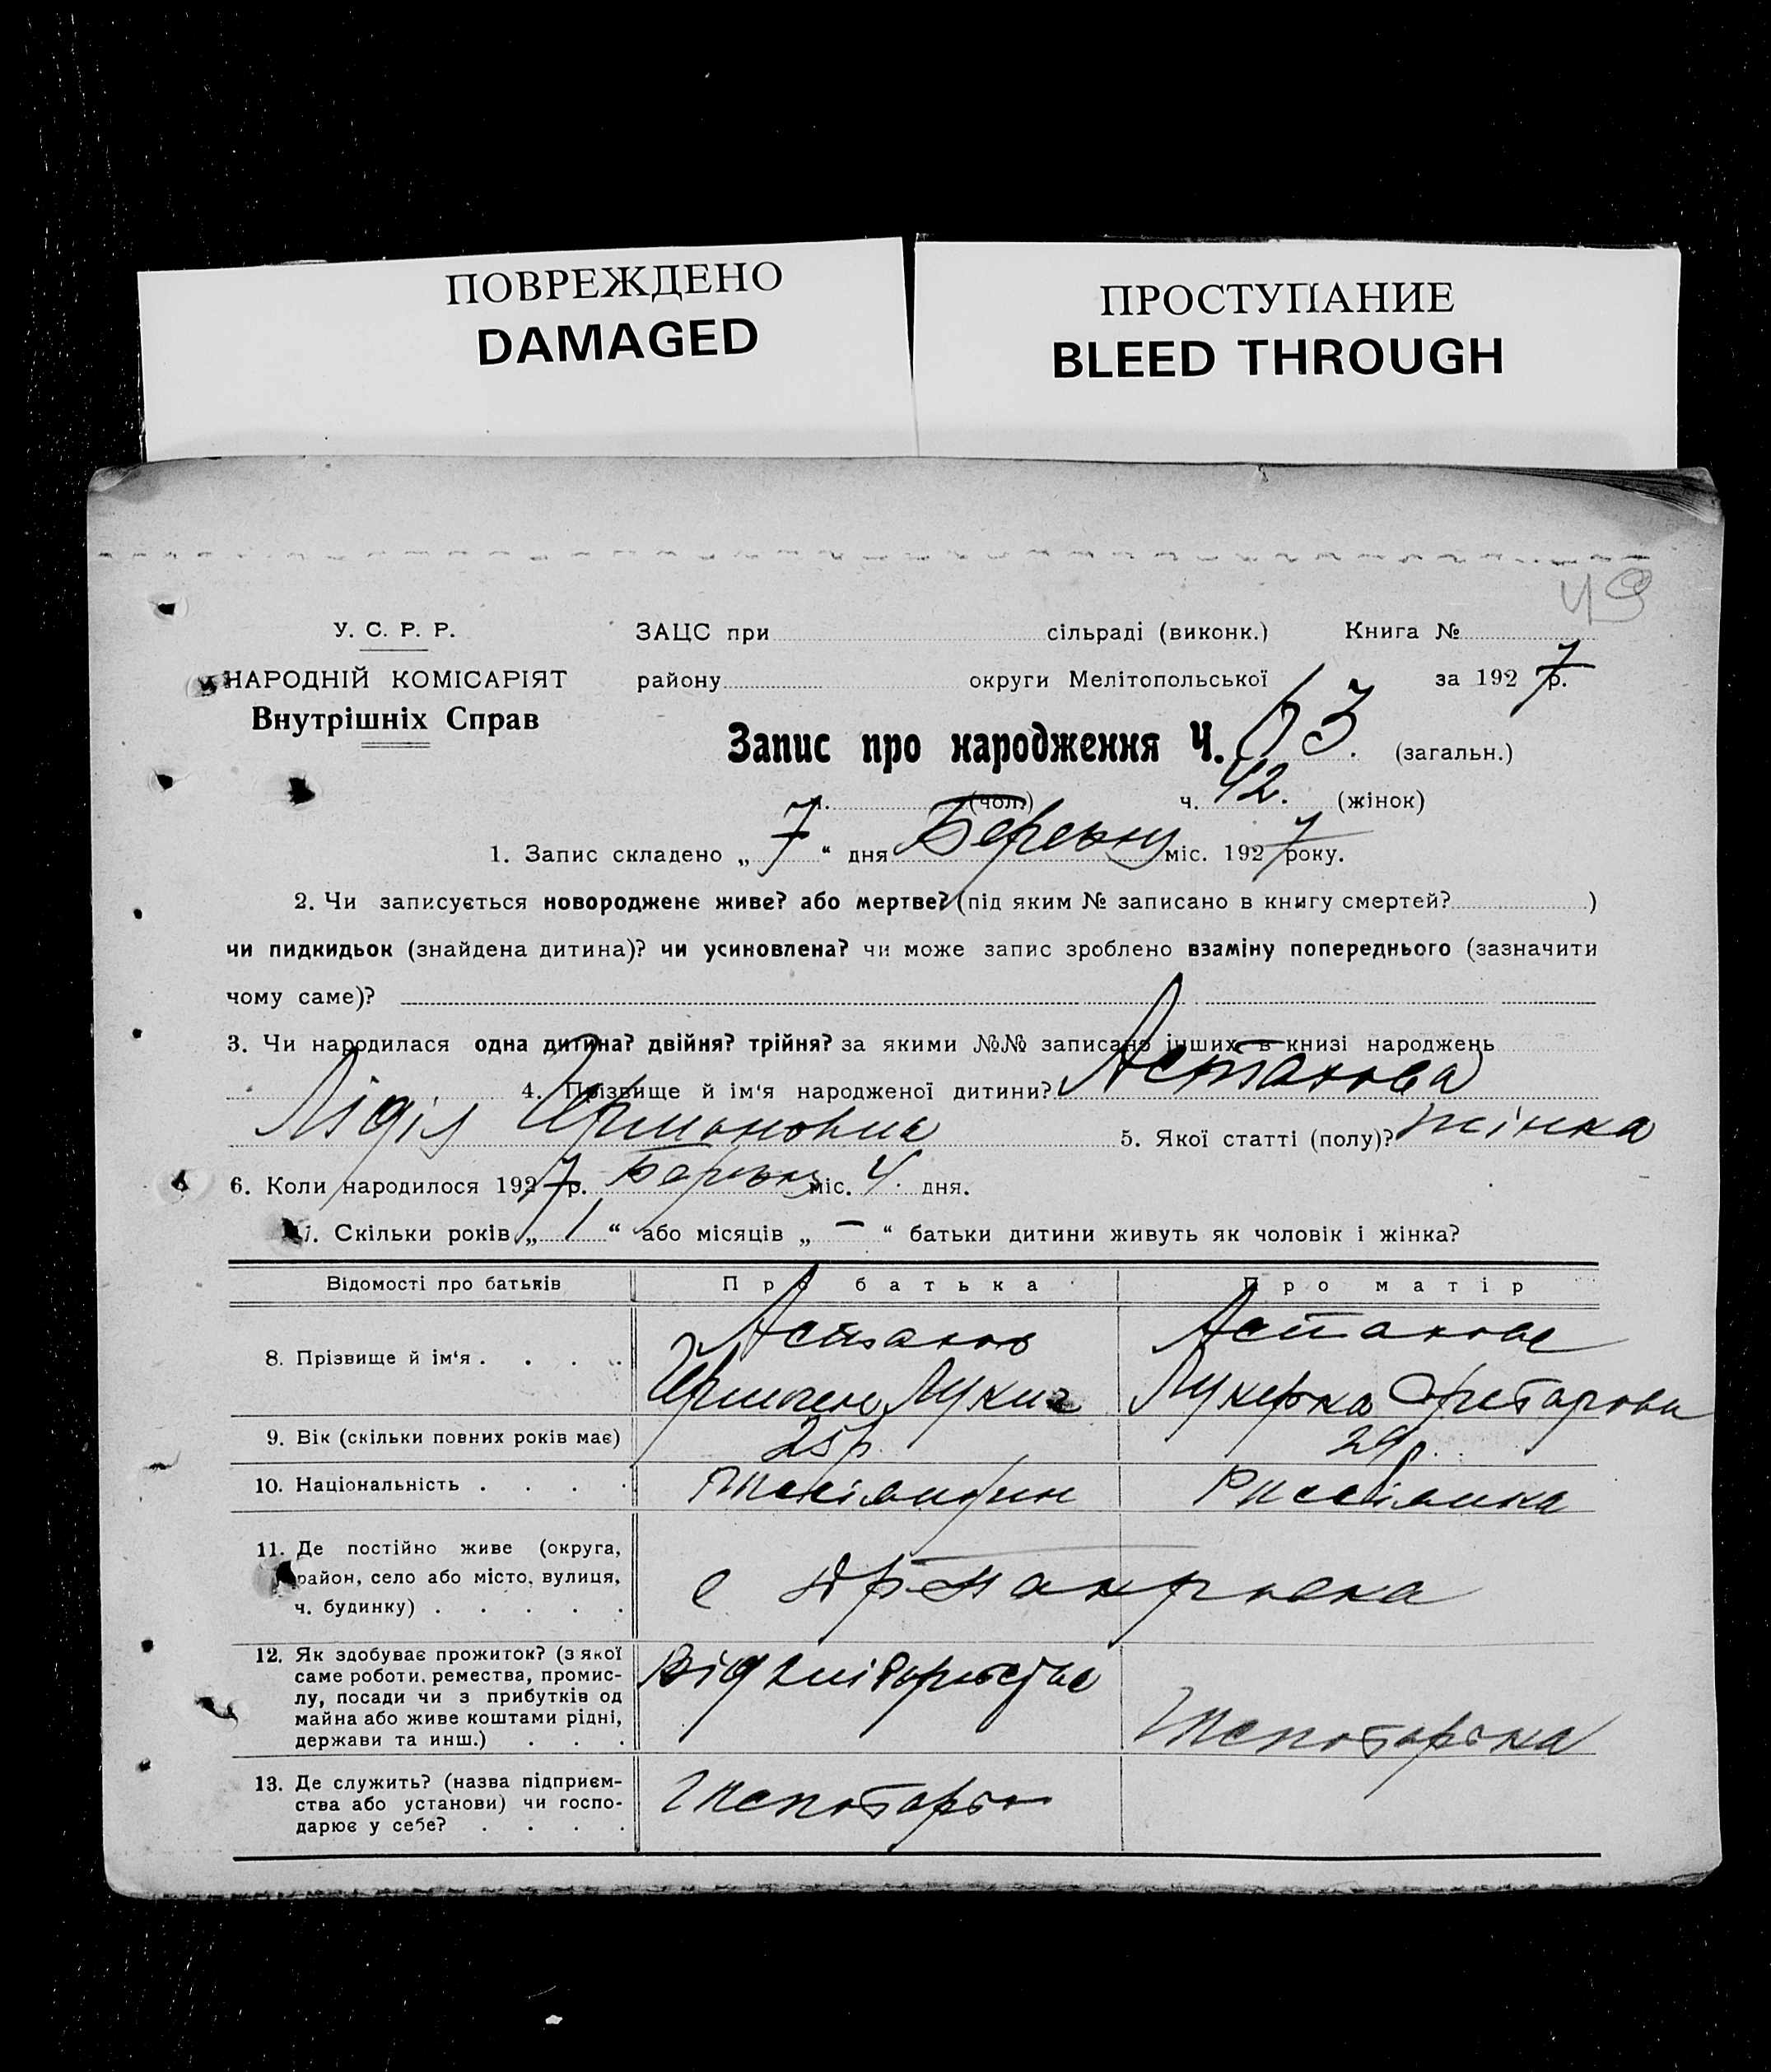 ПОВРЕЖДЕНО
DAMAGED
ПРОСТУПАНИЕ
BLEED THROUGH
49
У. С. Р. Р.
НАРОДНІЙ КОМІСАРІЯТ
Внутрішніх Справ
ЗАЦС при сільраді (виконк.) Книга №
району округи Мелітопольської за 1927 р.
Запис про народження Ч. 63. (загальн.)
ч. (чол.) ч. 42. (жінок)
1. Запис складено „ 7 “ дня Березня міс. 1927 року.
2. Чи записується новороджене живе? або мертве? (під яким № записано в книгу смертей? )
чи пидкидьок (знайдена дитина)? чи усиновлена? чи може запис зроблено взаміну попереднього (зазначити
чому саме)?
3. Чи народилася одна дитина? двійня? трійня? за якими №№ записано інших в книзі народжень
4. Прізвище й ім'я народженої дитини? Астахова
Лідія 5. Якої статті (полу)? жінка
6. Коли народилося 1927 р. Березня міс. 4. дня.
7. Скільки років „ 1 “ або місяців „ — “ батьки дитини живуть як чоловік і жінка?
Відомості про батьків Про батька Про матір
8. Прізвище й ім'я . . . . Астахов Астахова
9. Вік (скільки повних років має) 25 р. 24 р.
10. Національність . . . .
11. Де постійно живе (округа,
район, село або місто, вулиця,
ч. будинку) . . . . . с
12. Як здобуває прожиток? (з якої
саме роботи, ремества, промис-
лу, посади чи з прибутків од
майна або живе коштами рідні,
держави та инш.) . . .
13. Де служить? (назва підприєм-
ства або установи) чи госпо-
дарює у себе? . . . .